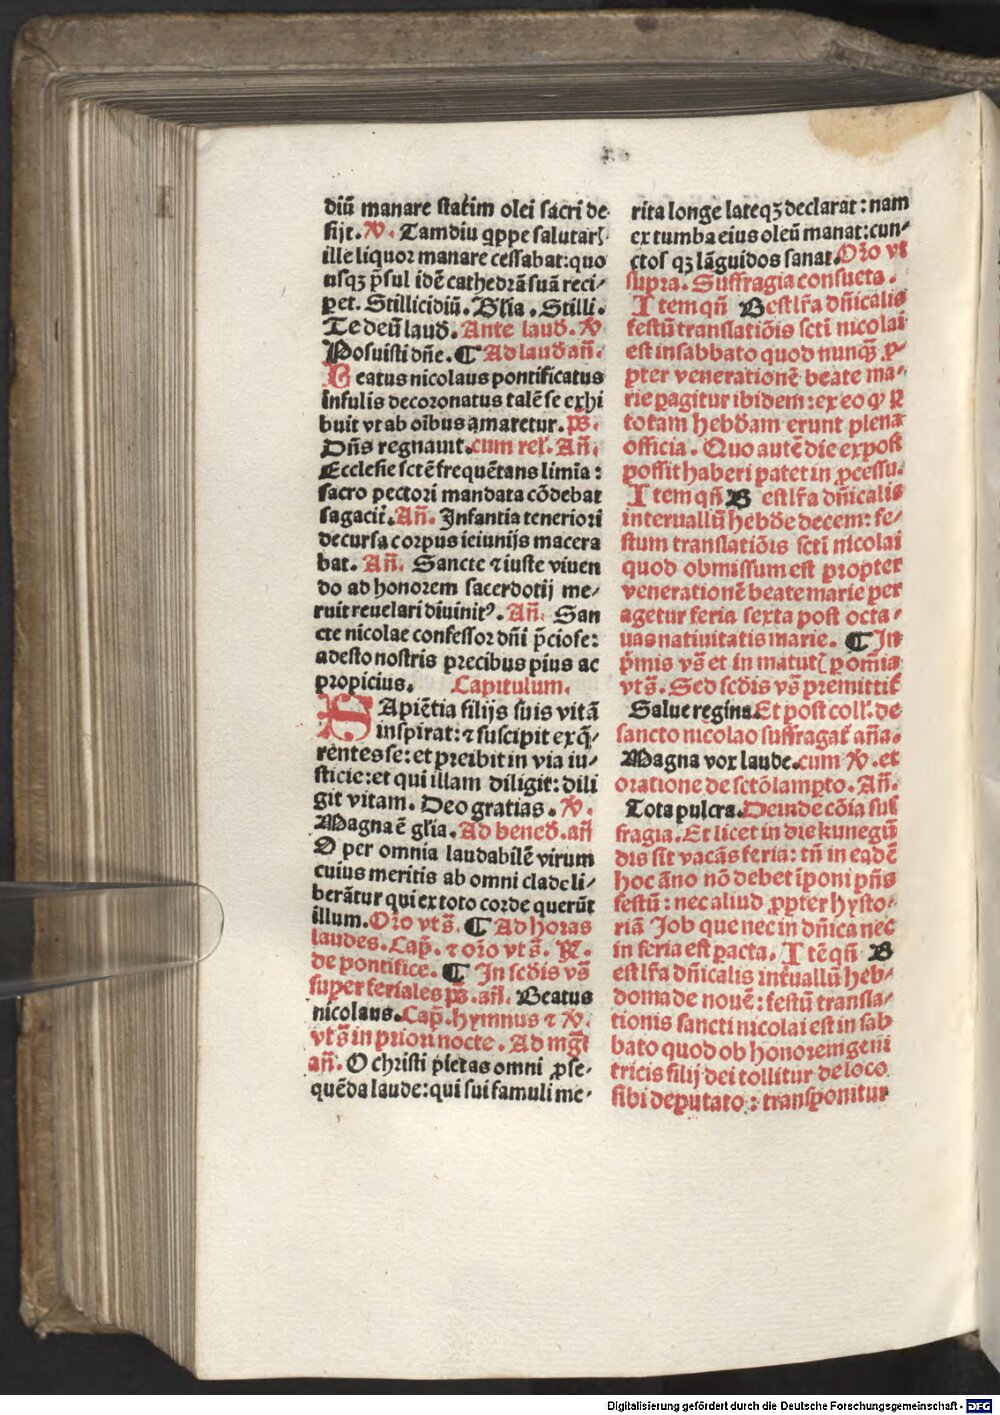 diū manare statim olei sacri de-
sijt. V̷. Tamdiu qͥppe salutarꝭ
ille liquor manare cessabat: quo
usqꝫ p̄sul idē cathedrā suā reci-
pet. Stillicidiū. Bl̄ia. Stilli.
Te deū laud̄. Ante laud̄. V̷
Posuisti dn̄e. ¶ Ad laud̄ an̄.
Beatus nicolaus pontificatus
infulis decoronatus talē se exhi
buit vt ab oībus amaretur. ps̄.
Dn̄s regnauit. cum rel̄. An̄.
Ecclesie sctē frequētans limia:
sacro pectori mandata cōdebat
sagacit̄. An̄. Infantia teneriori
decursa corpus ieiunijs macera
bat. An̄. Sancte ⁊ iuste viuen
do ad honorem sacerdotij me-
ruit reuelari diuinitꝰ. An̄. San
cte nicolae confessor dn̄i p̄ciose:
adesto nostris precibus pius ac
propicius. Capitulum.
SApiētia filijs suis vitā
inspirat: ⁊ suscipit exq̄-
rentes se: et preibit in via iu-
sticie: et qui illam diligit: dili
git vitam. Deo gratias. V̷.
Magna ē gl̄ia. Ad bened̄. an̄
O per omnia laudabilē virum
cuius meritis ab omni clade li-
berātur qui ex toto corde querūt
illum. Or̄o vt s̄. ¶ Ad horas
laudes. Cap̄. ⁊ or̄o vt s̄. R̷.
de pontifice. ¶ In scd̄is vs̄
super feriales ps̄. an̄. Beatus
nicolaus. Cap̄. hymnus ⁊ V̷.
vt s̄ in priori nocte. Ad mgt̄
an̄. O christi pietas omni ꝓse-
quēda laude: qui sui famuli me-
rita longe lateqꝫ declarat: nam
ex tumba eius oleū manat: cun-
ctos qꝫ lāguidos sanat. Or̄o vt
supra. Suffragia consueta.
Item qn̄ B est lr̄a dn̄icalis
festū translatiōis scti nicolai
est in sabbato quod nunqͣꝫ ꝓ-
pter venerationē beate ma-
rie pagitur ibidem: ex eo ꝙ ꝑ
totam hebd̄am erunt plena
officia. Quo autē die expost
possit haberi patet in ꝓcessu.
Item qn̄ B est lr̄a dn̄icalis
interuallū hebd̄e decem: fe-
stum translatiōis scti nicolai
quod obmissum est propter
venerationē beate marie per
agetur feria sexta post octa-
uas natiuitatis marie. ¶ In
p̄mis vs̄ et in matutꝭ ꝑ omīa
vt s̄. Sed scd̄is vs̄ premittit̄
Salue regina. Et post coll̄. de
sancto nicolao suffragat̄ an̄a.
Magna vox laude. cum V̷. et
oratione de sctō lamꝑto. An̄.
Tota pulcra. Deinde cōia suf
fragia. Et licet in die kunegū
dis sit vacās feria: tn̄ in eadē
hoc āno nō debet īponi pn̄s
festū: nec aliud ꝓpter hysto-
riā Job que nec in dn̄ica nec
in feria est pacta. Itē qn̄ B
est lr̄a dn̄icalis int̄uallū heb-
doma de nouē: festū transla-
tionis sancti nicolai est in sab
bato quod ob honorem geni
tricis filij dei tollitur de loco
sibi deputato: transponitur
Digitalisierung gefördert durch die Deutsche Forschungsgemeinschaft - DFG